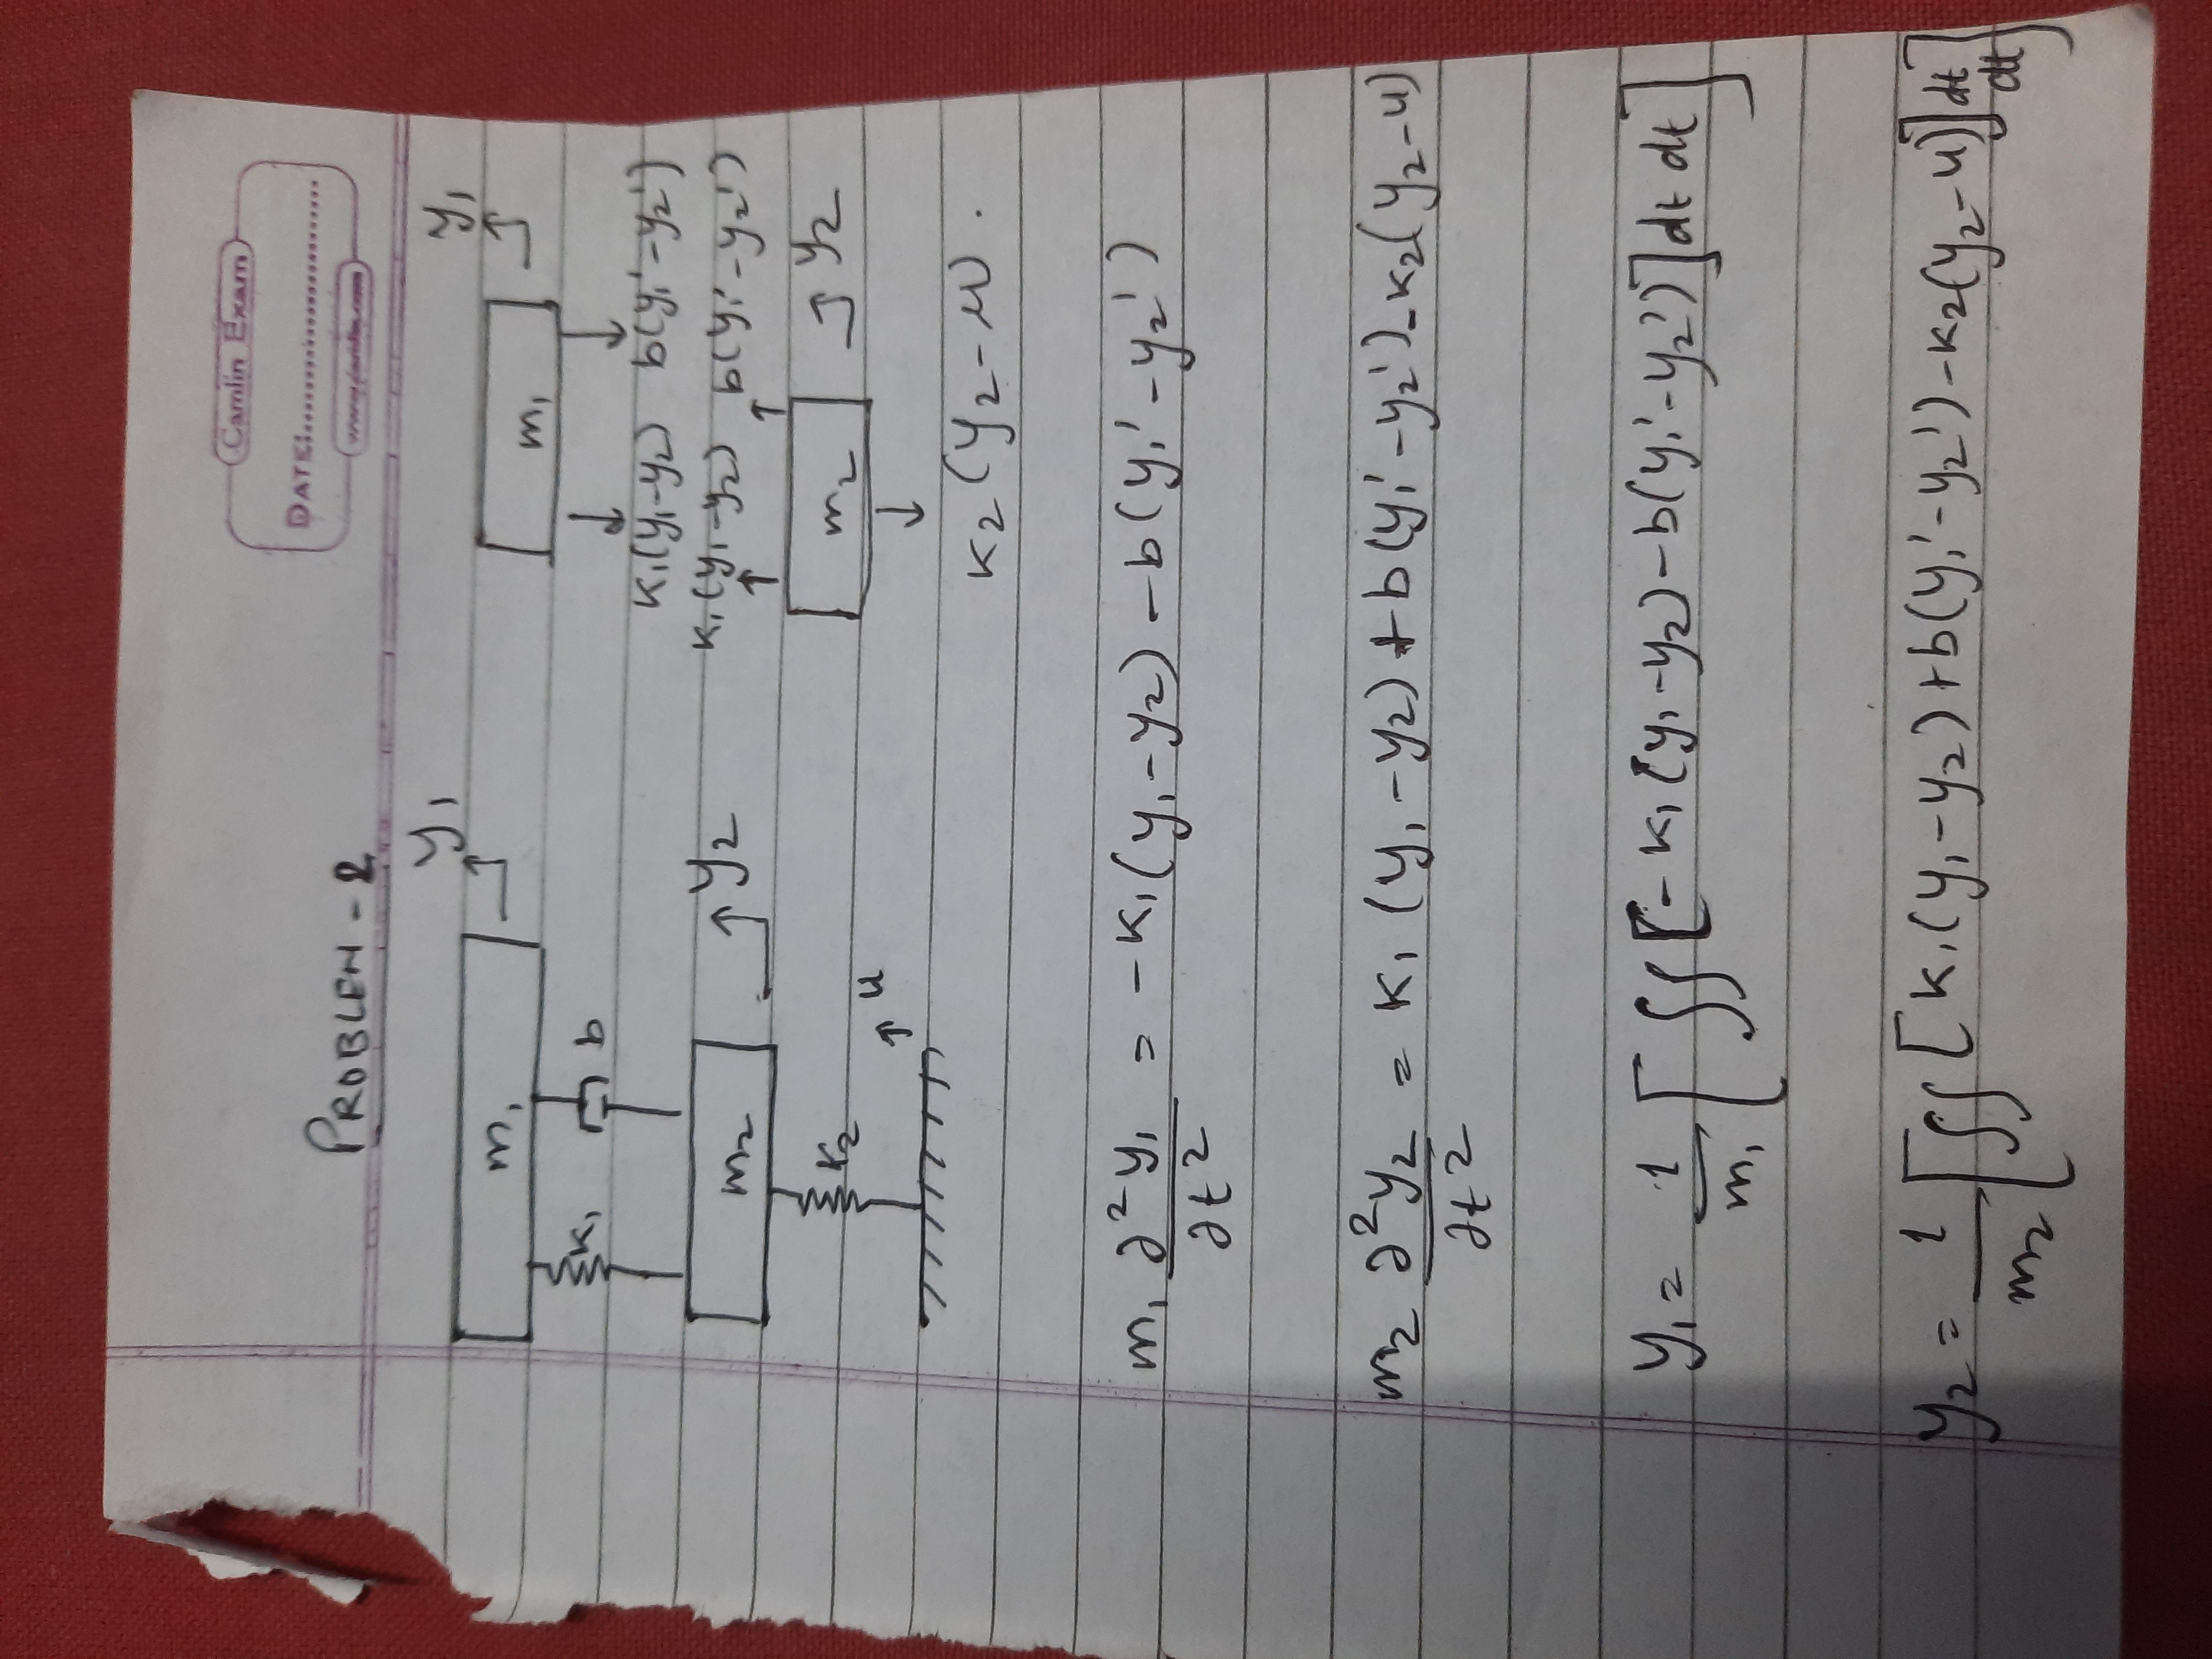 Camlin Exam
DATE:..............................
PROBLEM - 2
y₁
m₁
k₁
b
m₂
y₂
k₂
u
y₁
m₁
k₁(y₁-y₂) b(y₁'-y₂')
k₁(y₁-y₂) b(y₁'-y₂')
m₂
y₂
k₂(y₂-u).
m₁ ∂²y₁/∂t² = -k₁(y₁-y₂) - b(y₁'-y₂')
m₂ ∂²y₂/∂t² = k₁(y₁-y₂) + b(y₁'-y₂') - k₂(y₂-u)
y₁ = 1/m₁ [∫∫[-k₁(y₁-y₂) - b(y₁'-y₂')]dt dt]
y₂ = 1/m₂ [∫∫[k₁(y₁-y₂) + b(y₁'-y₂') - k₂(y₂-u)]dt dt]